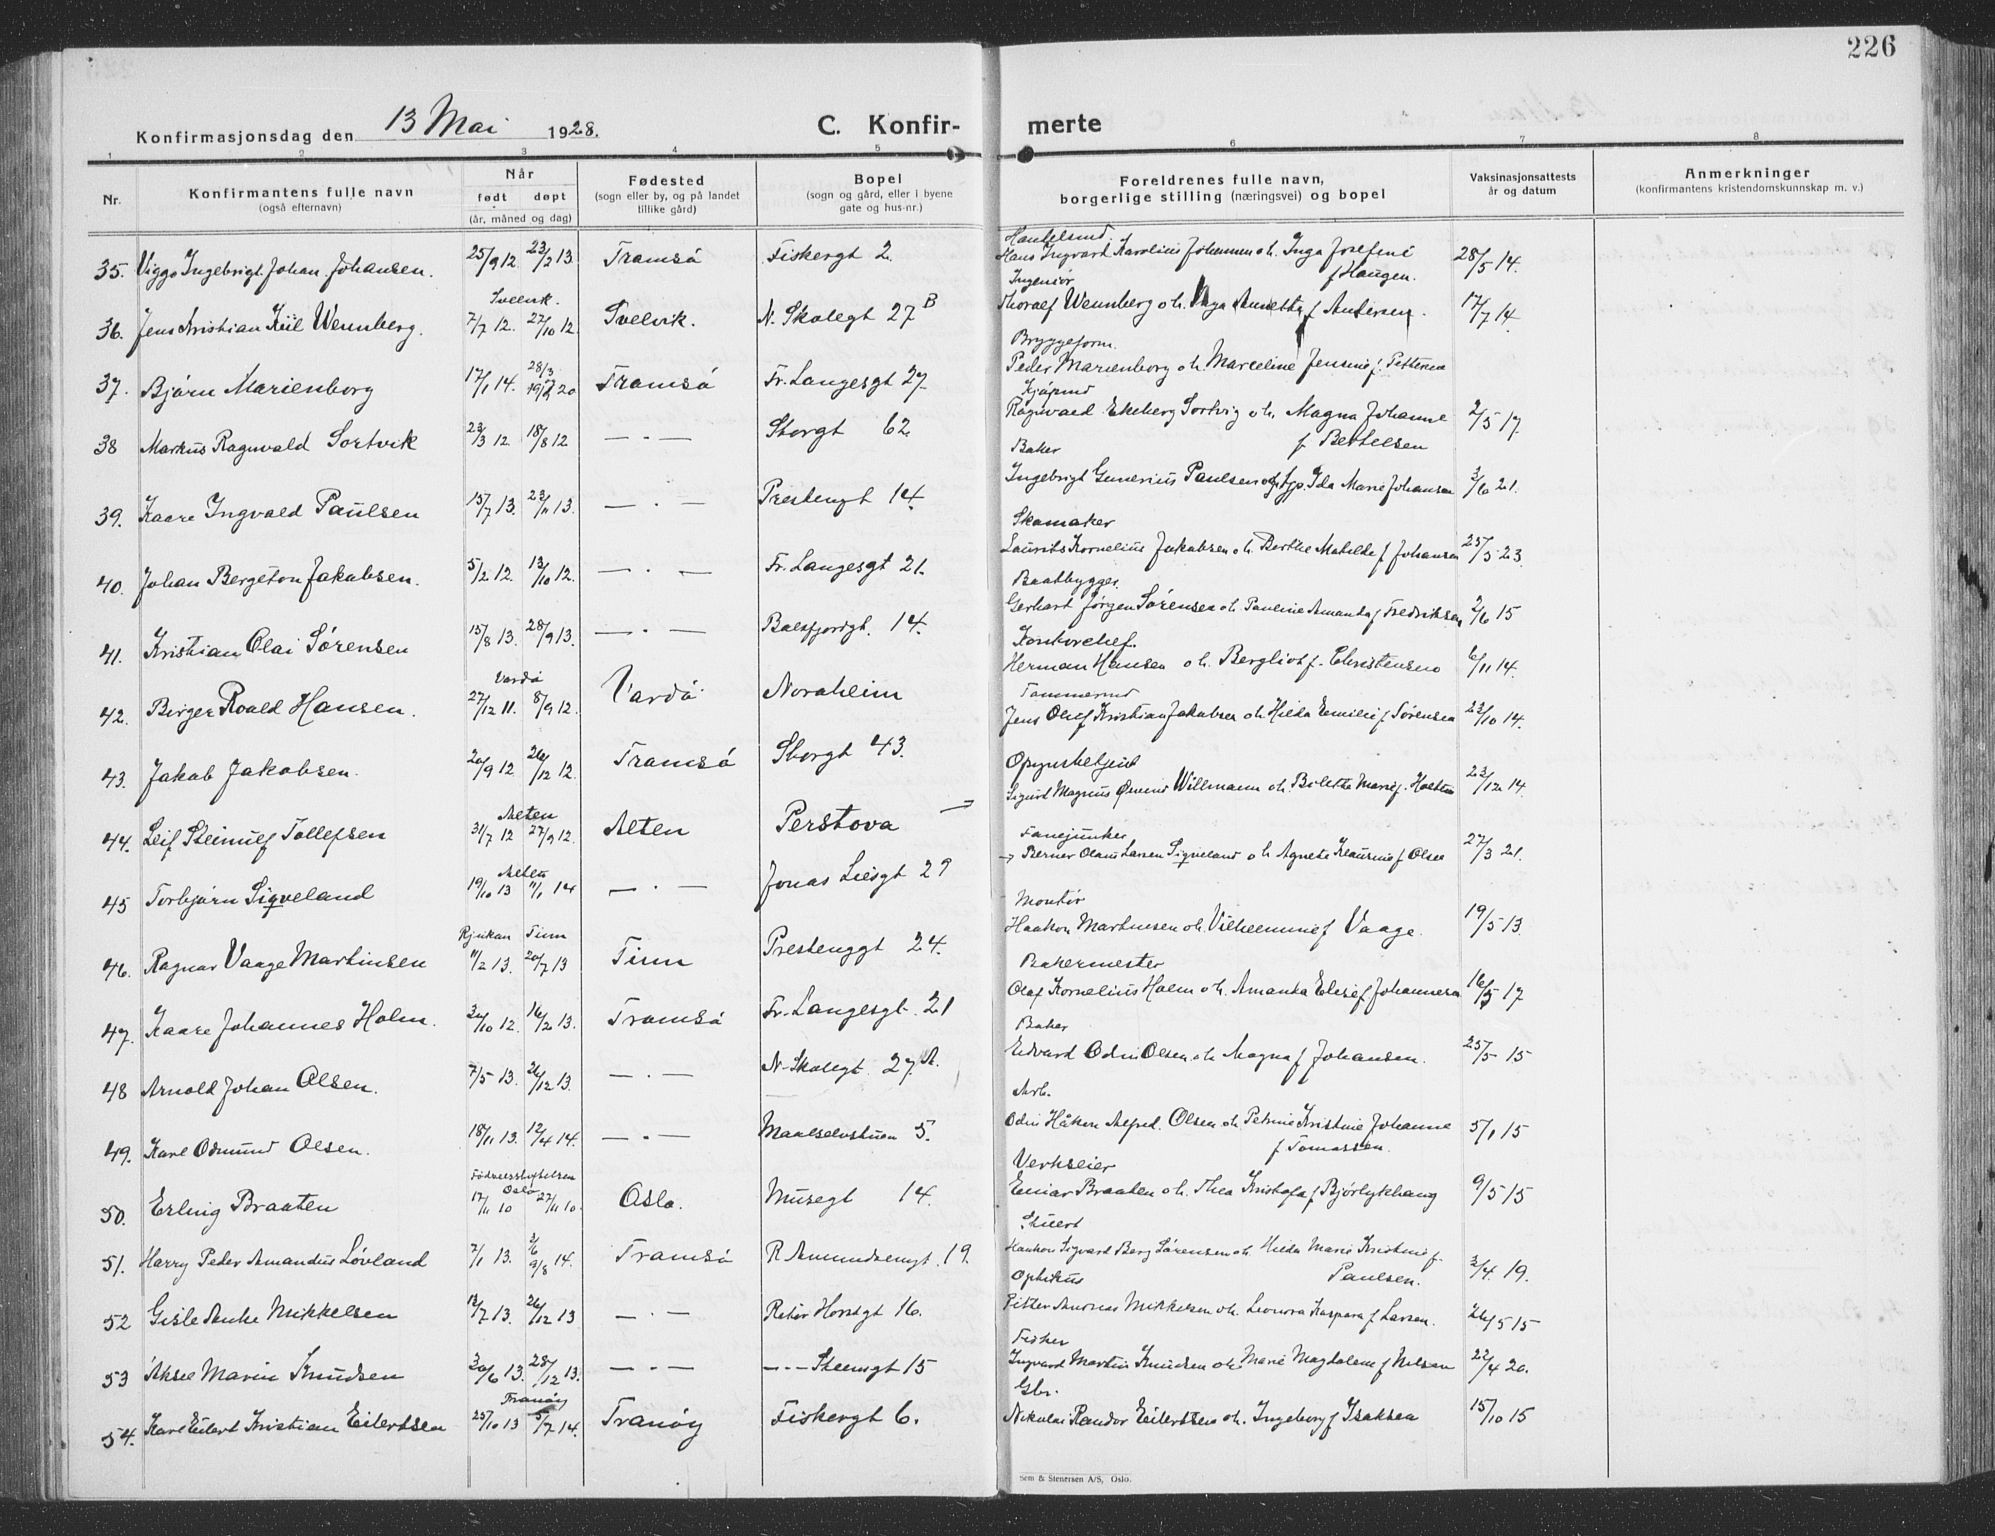 226
Konfirmasjonsdag den 13 Mai 1928.
C. Konfirmerte
1 2 3 4 5 6 7 8
Nr.
Konfirmantens fulle navn
(også efternavn)
Når
født døpt
(år, måned og dag)
Fødested
(sogn eller by, og på landet
tillike gård)
Bopel
(sogn og gård, eller i byene
gate og hus-nr.)
Foreldrenes fulle navn,
borgerlige stilling (næringsvei) og bopel
Vaksinasjonsattests
år og datum
Anmerkninger
(konfirmantens kristendomskunnskap m. v.)
35. Viggo Ingebrigt Johan Johansen. 25/9 12. 23/2 13. Tromsö Fiskergt 2. Hans Ingvart Karolius Johansen o h. Inga Josefine f Haugen. 28/5 14.
Ingeniör
36. Jens Kristian Kiil Wennberg. Svelvik. 7/7 12. 27/10 12. Svelvik. N. Skolegt 27 B Thoralf Wennberg o h. Inga Annetta f Andersen. 17/7 14.
Bryggeform.
37. Bjørn Marienborg 17/1 14. 28/3 20 Tromsö Fr. Langesgt 27 Peder Marienborg o h. Marceline Jensine f. Pettersen
Kjøpmd
38 Markus Ragnvald Sortvik 23/3 12 18/8 12 — . — Storgt 62. Ragnvald Ekeberg Sortvig o h. Magna Johanne f Bertelsen 2/5 17.
Baker
39. Kaare Ingvald Paulsen 15/7 13. 23/11 13. — . — Prestengt 14. Ingebrigt Gunerius Paulsen Ida Marie Johansen 3/6 21.
Skomaker
40. Johan Bergeton Jakobsen. 5/2 12. 13/10 12. — . — Fr. Langesgt 21. Laurits Kornelius Jakobsen o h. Berthe Matilde f Johansen 25/5 23.
Baatbygger.
41. Kristian Olai Sørensen 15/8 13. 28/9 13. — . — Balsfjordgt. 14. Gerhart Jørgen Sørensen o h. Pauline Amanda f Fredriksen 2/6 15
Kontorchef.
42. Birger Roald Hansen. Vardø 27/12 11. 8/9 12. Vardö Noraheim Herman Hansen o h. Bergliot f. Christensen 6/11 14.
Tømmermd
43. Jakob Jakobsen. 20/9 12 26/12 12. Tromsö Storgt 43. Jens Olef Kristian Jakobsen o h. Hilda Emilie f Sørensen 23/10 14.
44. Leif Steinulf Tollefsen Alten 31/7 12 27/9 12. Alten Perstova Sigurd Magnus Willmann o h. 23/12 14.
Fanejunker
45 Torbjørn Sigveland Alten 19/10 13 11/1 14 — . — Jonas Liesgt 29 Berner Olaus Larsen Sigveland o h Agnete Klausine f Olsen 27/3 21.
Montör
46. Ragnar Vaage Martinsen Rjukan Tinn 11/2 13. 20/7 13 Tinn Prestenggt 24. Haakon Martinsen o h. Vilhelmine f Vaage. 19/5 13.
Bakermester
47. Kaare Johannes Holm. 30/10 12. 16/2 13. Tromsö Fr. Langesgt. 21 Olaf Kornelius Holm o h. Amanda Elisef Johannesen 16/5 17
Baker
48 Arnold Johan Olsen. 7/5 13. 26/12 13. — . — N. Skolegt. 27 A. Edvard Odin Olsen o h. Magna f Johansen. 25/5 15
Arb.
49. Karl Odmund Olsen. 18/11 13. 12/4 14. — . — Maalselvstuen 5. Odin Håkon Alfred. Olsen o h. Petrine Kristine Johanne f Tomassen. 5/1 15
Verkseier
50. Erling Braaten Fødselsstiftelsen Oslo 17/11 10 27/11 10. Oslo. Musegt 14. Einar Braaten o h. Thea Kristofa f Bjørlykhaug 9/5 15
Stuert
51. Harry Peder Amandus Løvland 7/1 13. 9/8 14. Tromsö R. Amundsengt. 19. Haakon Sigvard Berg Sørensen o h. Hilda Marie Kristine f. Paulsen. 3/4. 19.
Optikus
52 Gisle Anke Mikkelsen 13/7 13. 26/12 13 — . — Rektor Horstgt 16. Petter Andreas Mikkelsen o h. Leonora Kaspara f Larsen. 26/5 15
Fisker
53 Aksel Marin Knudsen 30/6 13. 28/12 13. — . — – – – Steengt 15 Ingvard Martin Knudsen o h. Marie Magdalene f Nilsen 22/4 20.
Gbr.
54. Karl Eilert Kristian Eilertsen Tranöy 25/10 13 5/7 14. Tranöy Fiskergt 6. Nikolai Randor Eilertsen o h. Ingeborg f Isaksen 15/10 15
Sem & Stenersen A/S, Oslo.